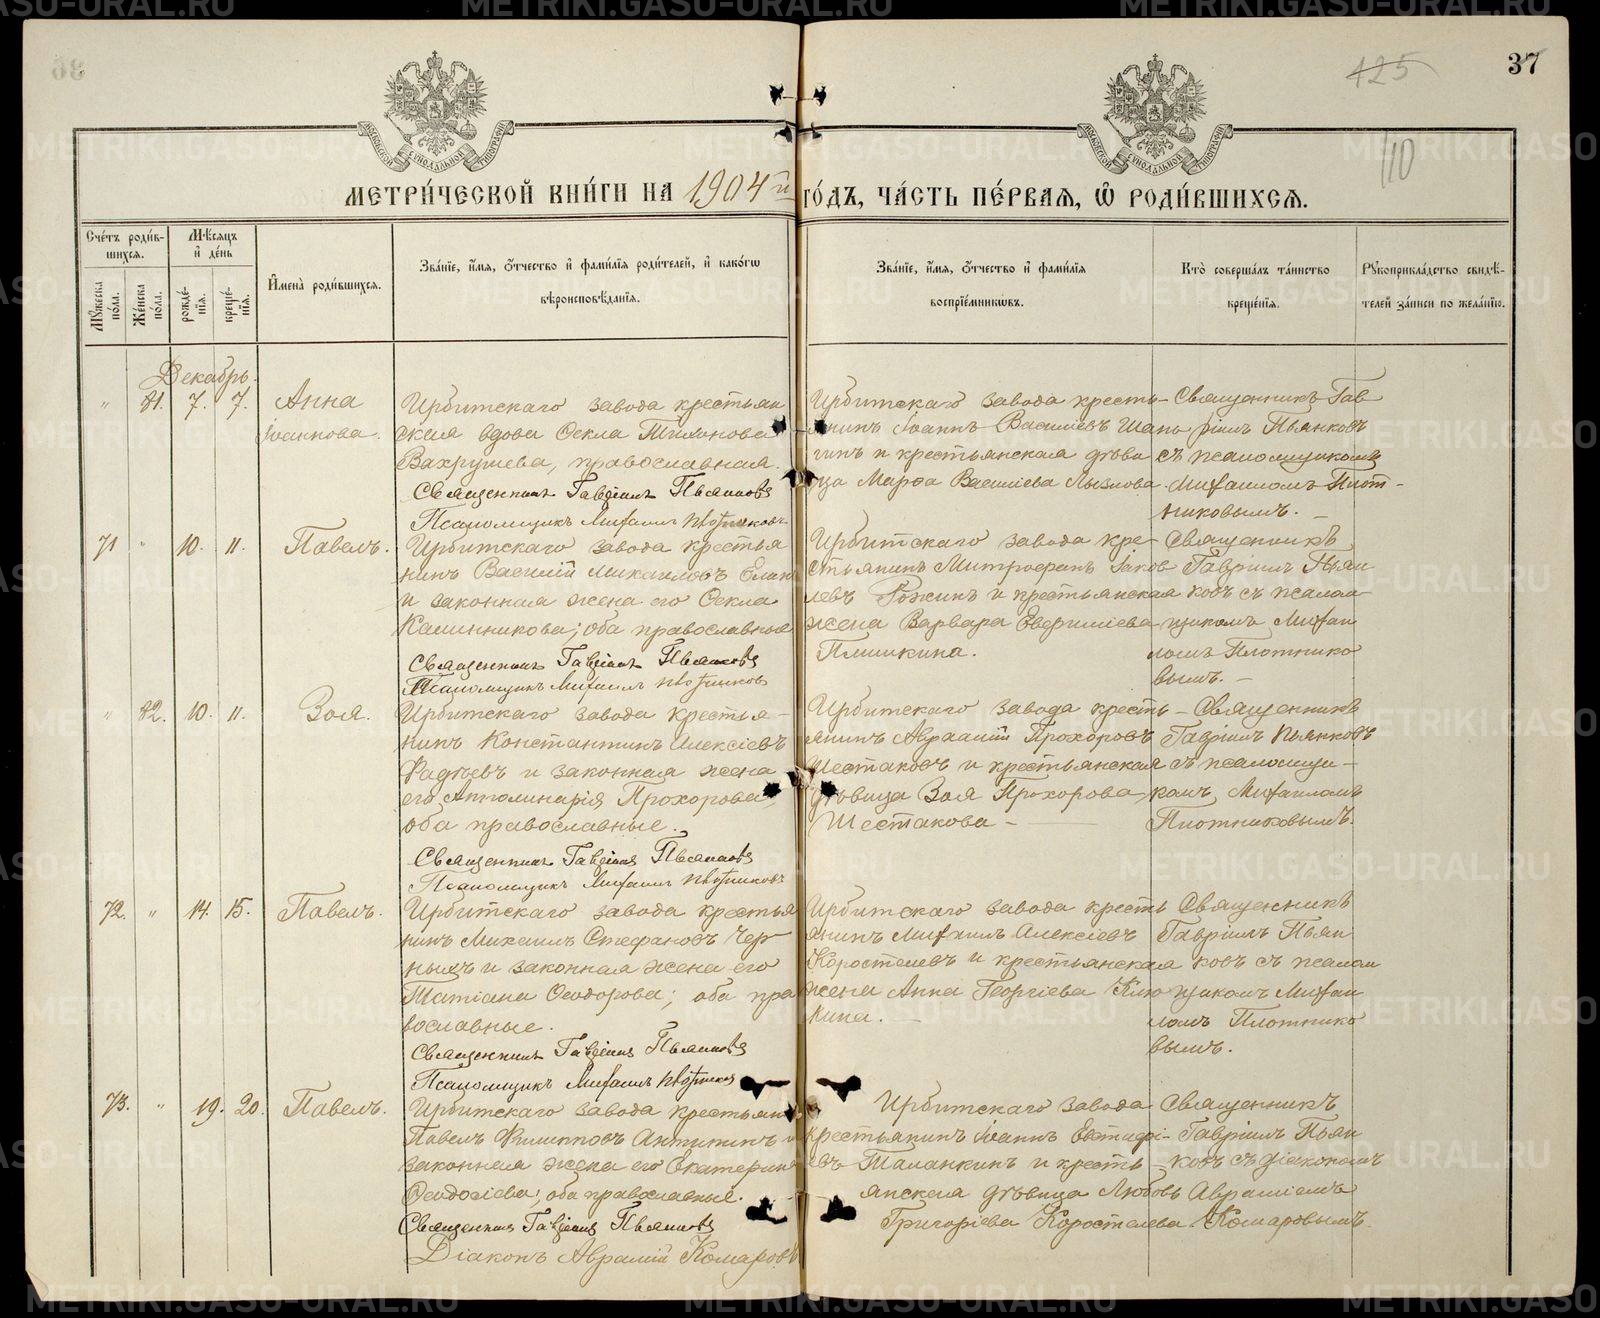 37
125
110
МЕТРИ́ЧЕСКОЙ КНИ́ГИ НА 1904й ГО́ДЪ, ЧА́СТЬ ПЕ́РВАЯ, Ѡ РОДИ́ВШИХСЯ.
Сче́тъ роди́в-
шихся.
Му́жеска по́ла.
Же́нска по́ла.
Мѣ́сяцъ
и де́нь
рожде́-
нія.
креще́-
нія.
Имена̀ роди́вшихся.
Зва́ніе, и́мя, о́тчество и фами́лія роди́телей, и како́гѡ
вѣроисповѣ́данія.
Зва́ніе, и́мя, о́тчество и фами́лія
воспріе́мниковъ.
Кто̀ соверша́лъ та́инство
креще́нія.
Рукоприкла́дство свидѣ́-
телей за́писи по жела́нію.
Декабрь.
" 81. 7. 7. Анна
Іоаннова.
Ирбитскаго завода крестьян
ская вдова Ѳекла
Вахрушева, православная.
Священникъ Гавріилъ Пьянковъ
Псаломщикъ Михаилъ Плотниковъ
Ирбитскаго завода кресть-
янинъ Іоаннъ Василіевъ Шапо
гинъ и крестьянская дѣви
ца Марѳа Василіева Лызлова.
Священникъ Гав
ріилъ Пьянковъ
съ псаломщикомъ
Михаиломъ Плот-
никовымъ.
71 " 10. 11. Павелъ.
Ирбитскаго завода крестья
нинъ Василій Михаиловъ
и законная жена его Ѳекла
Калинникова; оба православные
Священникъ Гавріилъ Пьянковъ
Псаломщикъ Михаилъ Плотниковъ
Ирбитскаго завода кре-
стьянинъ Митрофанъ Іаков
левъ и крестьянская
жена Варвара
Священникъ
Гавріилъ Пьян
ковъ съ псалом
щикомъ Михаи
ломъ Плотнико
вымъ.
" 82. 10. 11. Зоя.
Ирбитскаго завода крестья-
нинъ Константинъ Алексіевъ
Фадѣевъ и законная жена
его Апполинарія Прохорова,
оба православные.
Священникъ Гавріилъ Пьянковъ
Псаломщикъ Михаилъ Плотниковъ
Ирбитскаго завода кресть-
янинъ Авраамій Прохоровъ
Шестаковъ и крестьянская
дѣвица Зоя Прохорова
Шестакова
Священникъ
Гавріилъ Пьянковъ
съ псаломщи-
комъ Михаиломъ
Плотниковымъ.
72. " 14. 15. Павелъ.
Ирбитскаго завода крестья
нинъ Михаилъ Стефановъ Чер
ныхъ и законная жена его
Татіана Ѳеодорова; оба пра
вославные.
Священникъ Гавріилъ Пьянковъ
Псаломщикъ Михаилъ Плотниковъ
Ирбитскаго завода кресть
янинъ Михаилъ Алексіевъ
Коростелевъ и крестьянская
жена Анна Георгіева Клю
кина.
Священникъ
Гавріилъ Пьян
ковъ съ псалом
щикомъ Михаи
ломъ Плотнико
вымъ.
73. " 19. 20. Павелъ.
Ирбитскаго завода крестьянинъ
Павелъ Филипповъ Антипинъ и
законная жена его Екатерина
Ѳеодосіева; оба православные.
Священникъ Гавріилъ Пьянковъ
Діаконъ Аврамій Комаровъ
Ирбитскаго завода
крестьянинъ Іоаннъ Евстафі-
евъ Таланкинъ и кресть-
янская дѣвица Любовь
Григоріева Коростелева
Священникъ
Гавріилъ Пьян
ковъ съ діакономъ
Авраміемъ
Комаровымъ.
METRIKI.GASO-URAL.RU